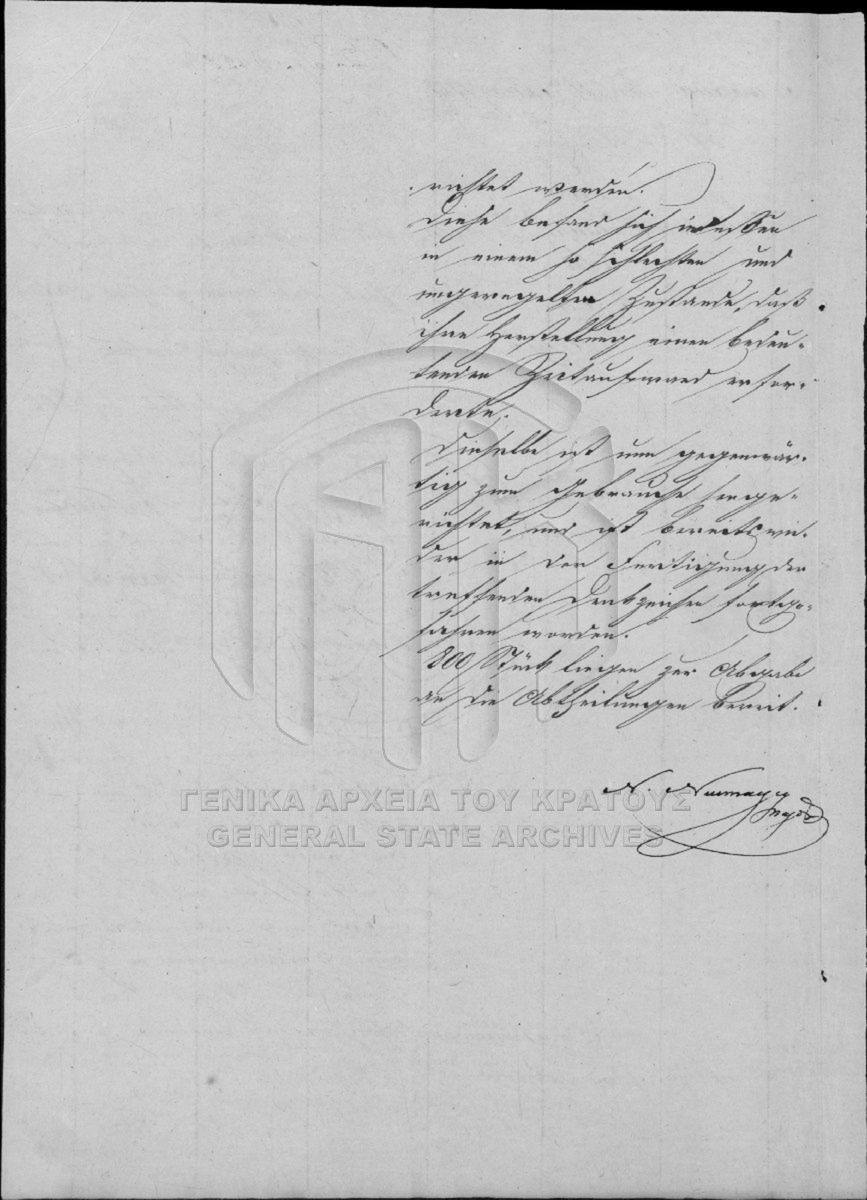 richtet werden.
Diese befand sich indessen
in einem so schlechten und
ungeregelten Zustande, daß
ihre Herstellung einen bedeu-
tenden Zeitaufwand erfor-
derte.
Dieselbe ist nun gegenwär-
tig zum Gebrauche herge-
richtet, und ist bereits wie-
der in der Fertigung der
treffenden Denkzeichen fortge-
fahren worden.
800 Stück liegen zur Abgabe
an die Abtheilungen bereit.
ΓΕΝΙΚΑ ΑΡΧΕΙΑ ΤΟΥ ΚΡΑΤΟΥΣ
GENERAL STATE ARCHIVES